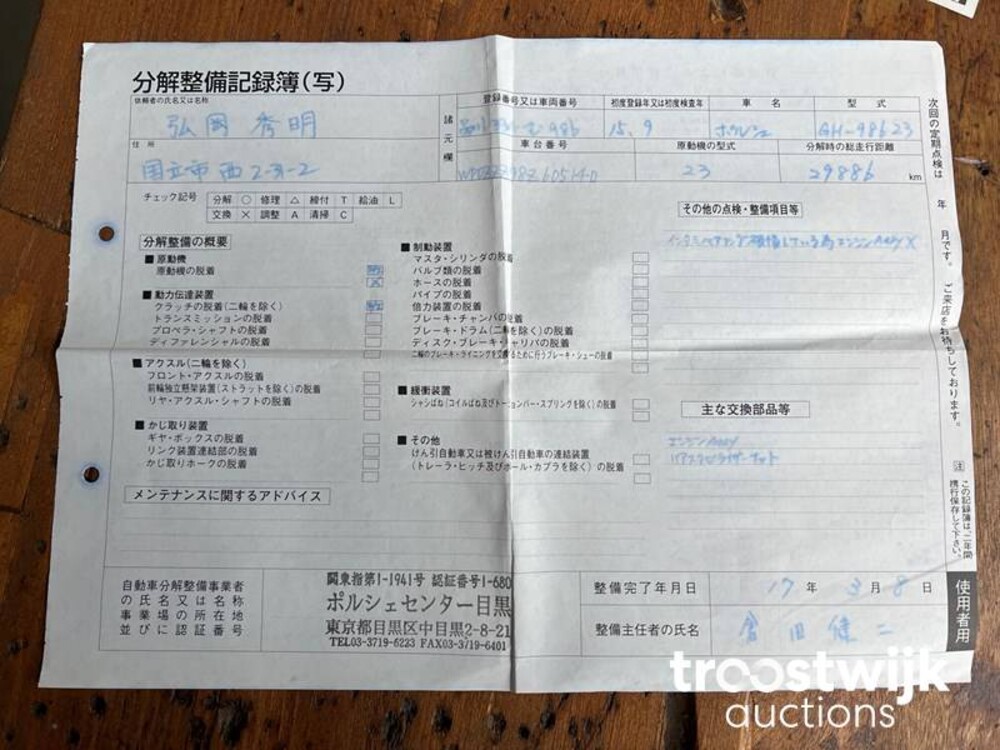 分解整備記録簿(写)
依頼者の氏名又は名称
弘岡 秀明
住所
国立市西2-3-2
諸元欄
登録番号又は車両番号
初度登録年又は初度検査年
15.9
車名
ポルシェ
型式
GH-98623
車台番号
原動機の型式
23
分解時の総走行距離
29886 km
チェック記号
分解 ○ 修理 △ 締付 T 給油 L
交換 × 調整 A 清掃 C
分解整備の概要
■ 原動機
原動機の脱着
■ 動力伝達装置
クラッチの脱着(二輪を除く)
トランスミッションの脱着
プロペラ・シャフトの脱着
ディファレンシャルの脱着
■ アクスル(二輪を除く)
フロント・アクスルの脱着
前輪独立懸架装置(ストラットを除く)の脱着
リヤ・アクスル・シャフトの脱着
■ かじ取り装置
ギヤ・ボックスの脱着
リンク装置連結部の脱着
かじ取りホークの脱着
■ 制動装置
マスタ・シリンダの脱着
バルブ類の脱着
ホースの脱着
パイプの脱着
倍力装置の脱着
ブレーキ・チャンバの脱着
ブレーキ・ドラム(二輪を除く)の脱着
ディスク・ブレーキ・キャリパの脱着
二輪のブレーキ・ライニングを交換するために行うブレーキ・シューの脱着
■ 緩衝装置
シャシばね(コイルばね及びトーションバー・スプリングを除く)の脱着
■ その他
けん引自動車又は被けん引自動車の連結装置
(トレーラ・ヒッチ及びボール・カプラを除く)の脱着
その他の点検・整備項目等
主な交換部品等
エンジンAssy
メンテナンスに関するアドバイス
自動車分解整備事業者
の氏名又は名称
事業場の所在地
並びに認証番号
関東指第1-1941号 認証番号1-680
ポルシェセンター目黒
東京都目黒区中目黒2-8-21
TEL03-3719-6223 FAX03-3719-6401
整備完了年月日
17 年 3 月 8 日
整備主任者の氏名
倉田 健二
次回の定期点検は 年 月です。ご来店をお待ちしております。
注 この記録簿は、二年間
携行保存して下さい。
使用者用
troostwijk
auctions